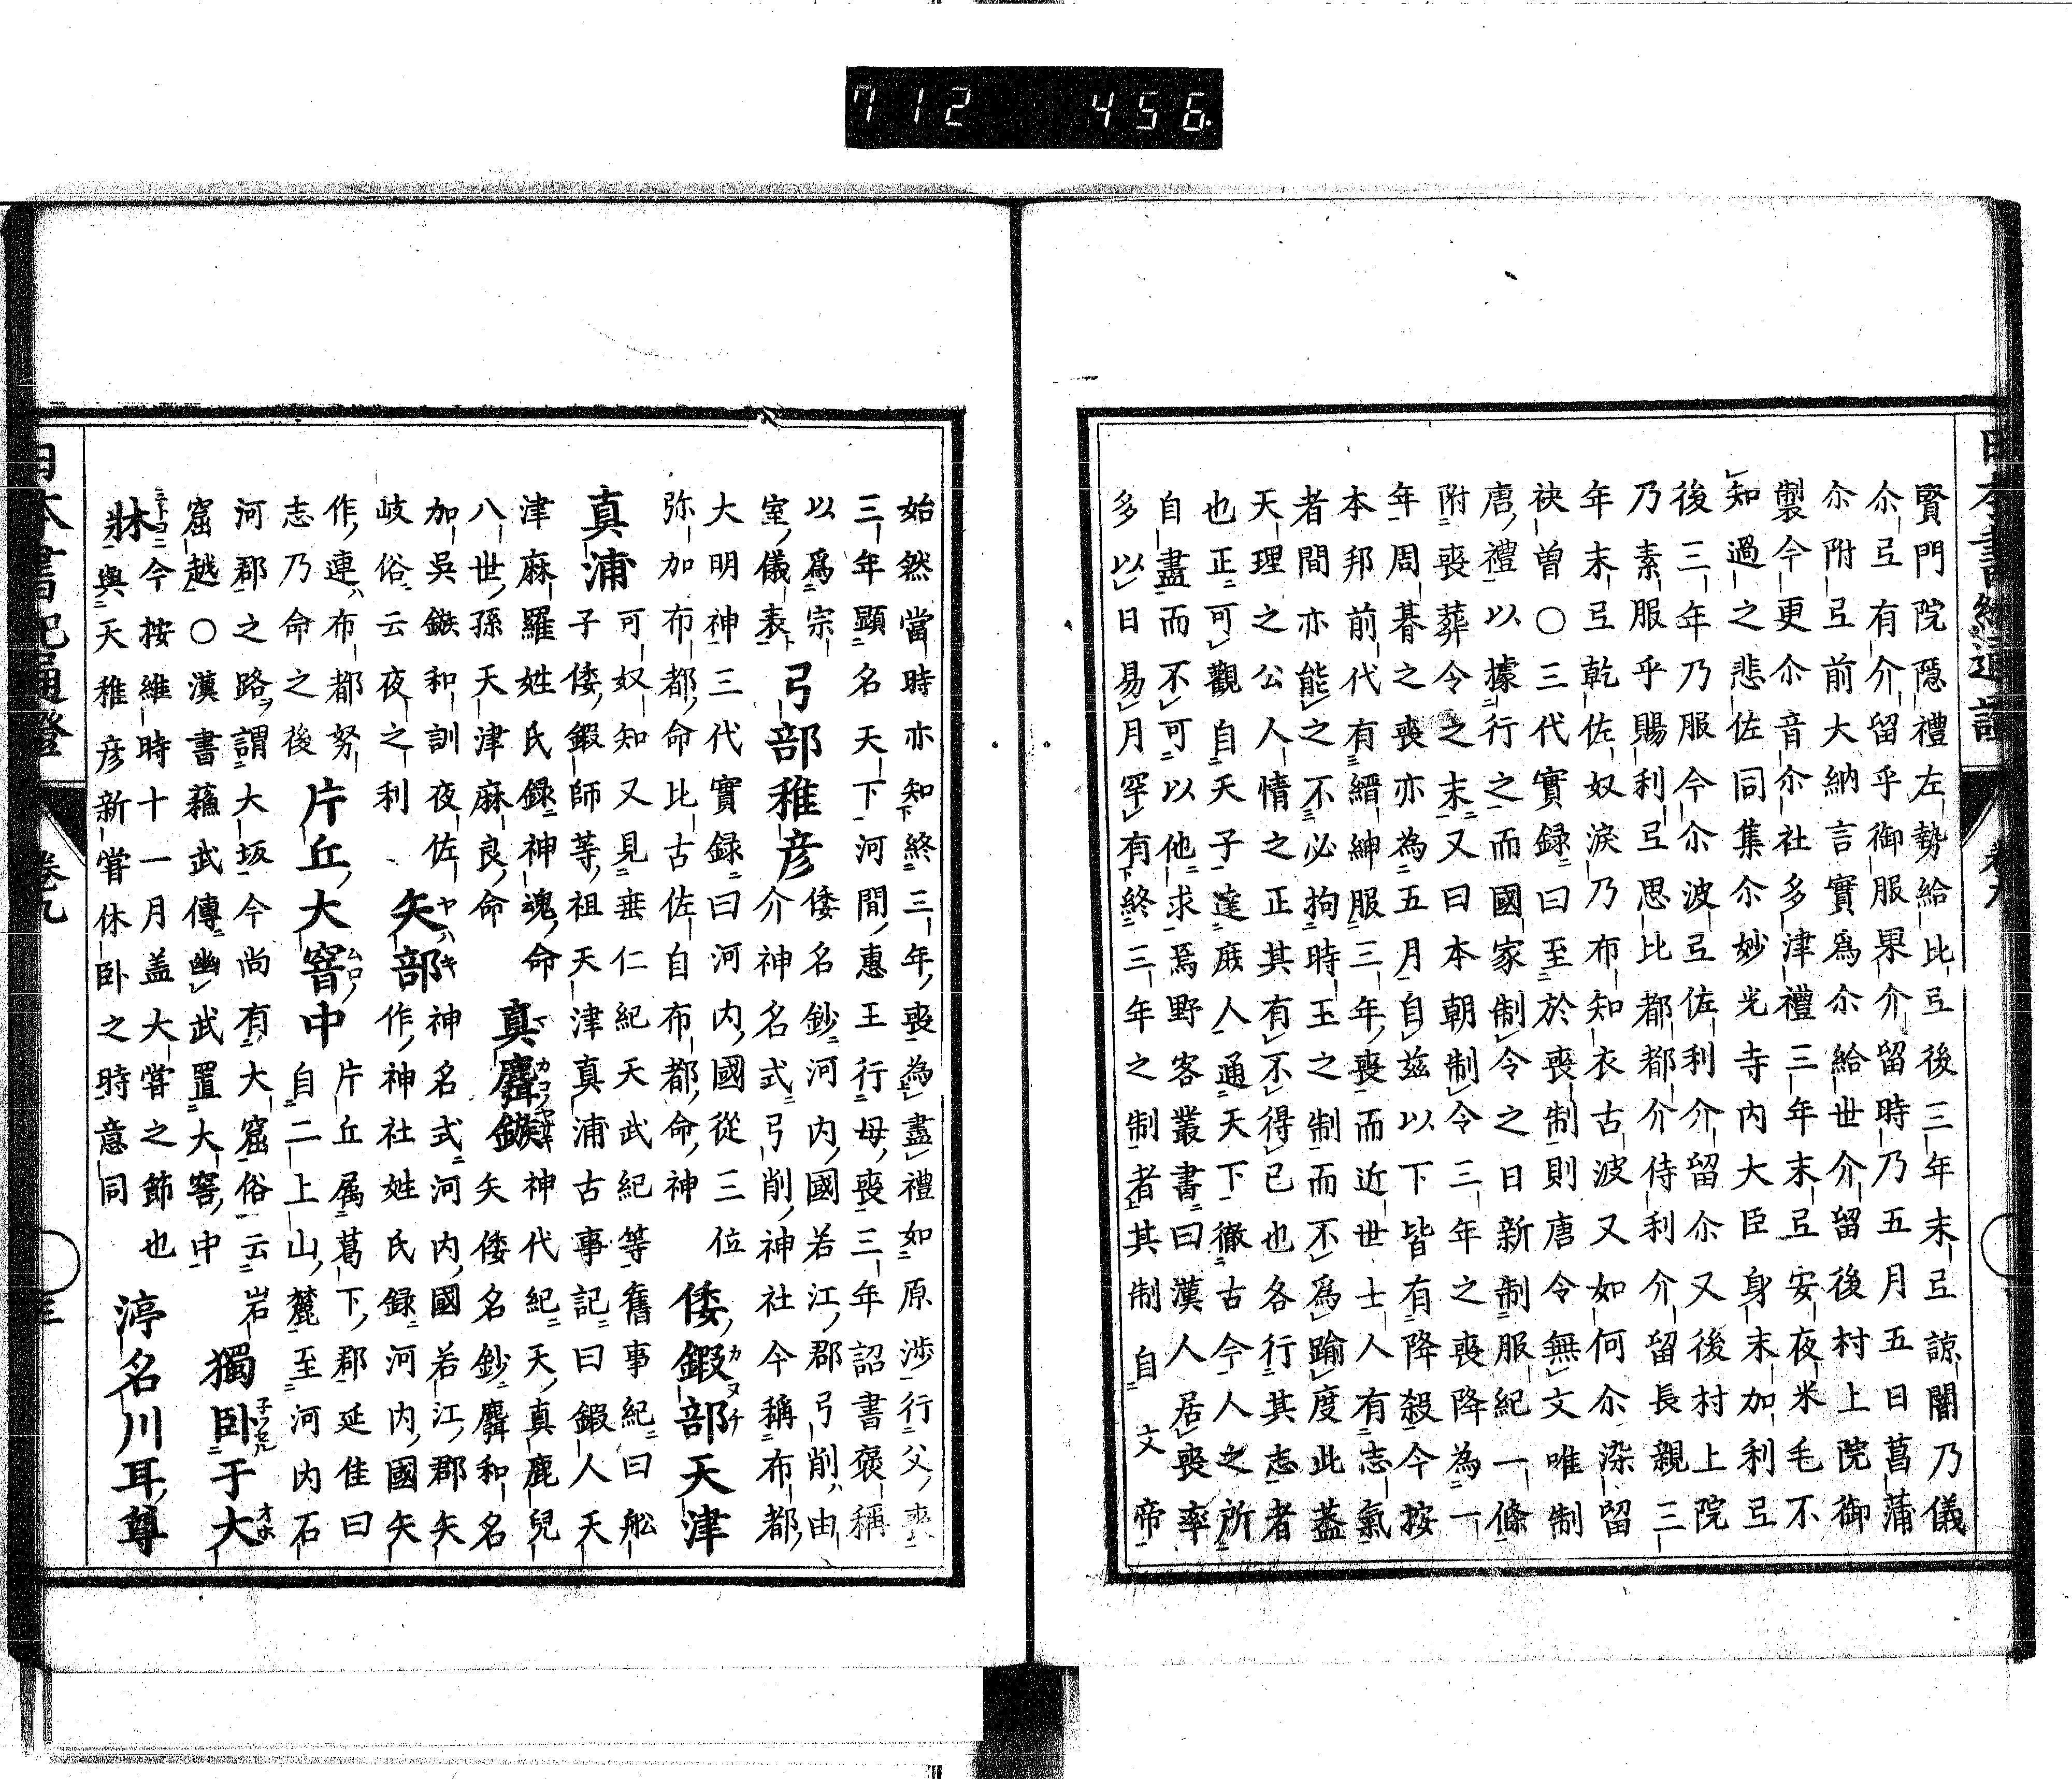 712 456
賢門院隱禮左勢給比弖後三年末弖諒闇乃儀
尒弖有介留乎御服果介留時乃五月五日菖蒲
尒附弖前大納言實爲尒給世介留後村上院御
製今更尒音尒社多津禮三年末弖安夜米毛不
知過之悲佐同集尒妙光寺内大臣身末加利弖
後三年乃服今尒波弖佐利介留尒又後村上院
乃素服乎賜利弖思比都都介侍利介留長親三
年末弖乾佐奴淚乃布知衣古波又如何尒染留
袂曽〇三代實録曰至於喪制則唐令無文唯制
唐禮以據行之而國家制令之日新制服紀一條
附喪葬令之末又曰本朝制令三年之喪降為一
年周朞之喪亦為五月自茲以下皆有降殺今按
本邦前代有縉紳服三年喪而近世士人有志氣
者間亦能之不必拘時玉之制而不爲踰度此葢
天理之公人情之正其有不得已也各行其志者
也正可觀自天子達庶人通天下徹古今人之所
自盡而不可以他求焉野客叢書曰漢人居喪率
多以日易月罕有終三年之制者其制自文帝
日本書紀通證 卷九
始然當時亦知終三年喪為盡禮如原涉行父喪
三年顯名天下河間惠王行母喪三年詔書褒稱
以爲宗室儀表 弓部稚彦 倭名鈔河内國若江郡弓削由
介神名式弓削神社今稱布都
大明神三代實録曰河内國從三位
弥加布都命比古佐自布都命神 倭鍜部天津
真浦 可奴知又見垂仁紀天武紀等舊事紀曰舩
子倭鍜師等祖天津真浦古事記曰鍜人天
津麻羅姓氏録神魂命
八世孫天津麻良命 真麛鏃 神代紀天真鹿兒
矢倭名鈔麛和名
加吳鏃和訓夜佐
岐俗云夜之利 矢部 神名式河内國若江郡矢
作神社姓氏録河内國矢
作連布都努
志乃命之後 片丘大窨中 片丘属葛下郡延佳曰
自二上山麓至河内石
河郡之路謂大坂今尚有大窟俗云岩
窟越〇漢書蘓武傳幽武置大窖中 獨卧于大
牀 今按維時十一月盖大嘗之節也
與天稚彦新嘗休卧之時意同 渟名川耳尊
日本書紀通證 卷九